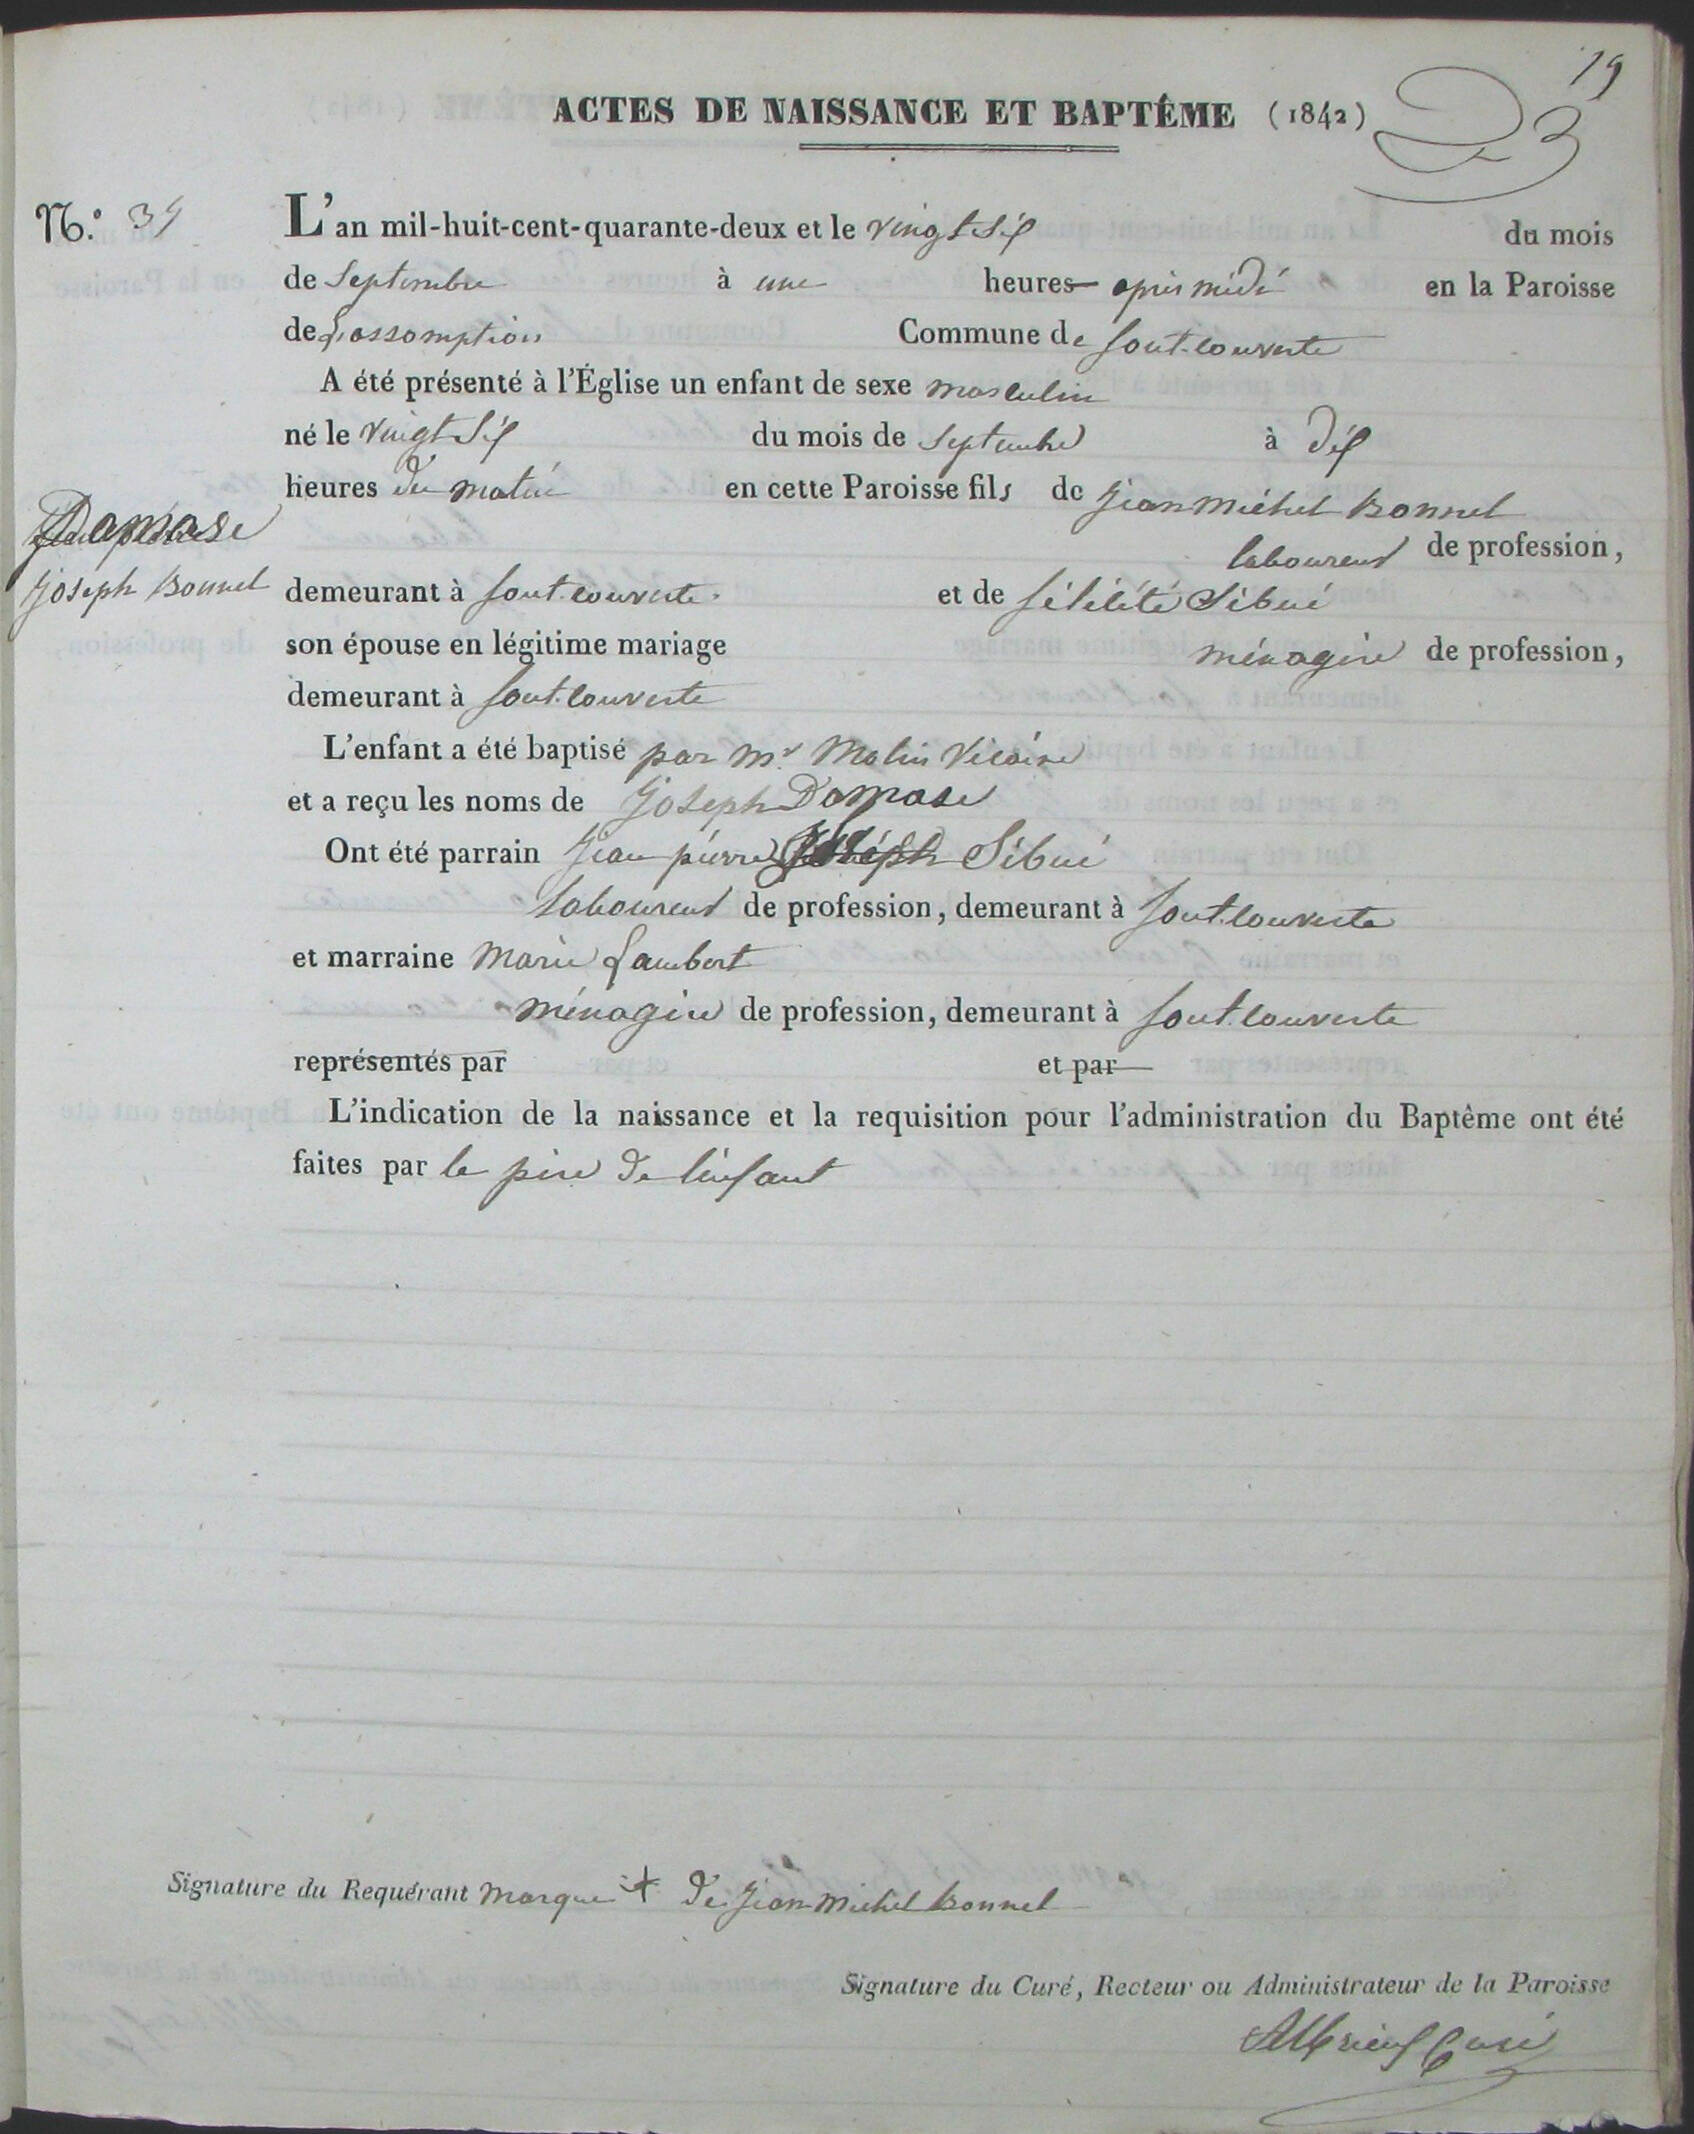 19
ACTES DE NAISSANCE ET BAPTÊME (1842)
N.º 39
L'an mil-huit-cent-quarante-deux et le vingt six du mois
de Septembre à une heures après midi en la Paroisse
de L'assomption Commune de font-couverte
A été présenté à l'Église un enfant de sexe masculin
né le vingt Six du mois de Septembre à dix
heures du matin en cette Paroisse fils de Jean Michel Bonnel
laboureur de profession,
Damase
Joseph Bonnel
demeurant à font-couverte et de félicité Sibué
son épouse en légitime mariage ménagère de profession,
demeurant à font-couverte
L'enfant a été baptisé par Mr Vicaire
et a reçu les noms de Joseph Damase
Ont été parrain Jean pierre Joseph Sibué
laboureur de profession, demeurant à font-couverte
et marraine Marie Lambert
ménagère de profession, demeurant à font-couverte
représentés par et par
L'indication de la naissance et la requisition pour l'administration du Baptême ont été
faites par le père de l'enfant
Signature du Requérant Marque + de Jean-Michel Bonnel
Signature du Curé, Recteur ou Administrateur de la Paroisse
Curé